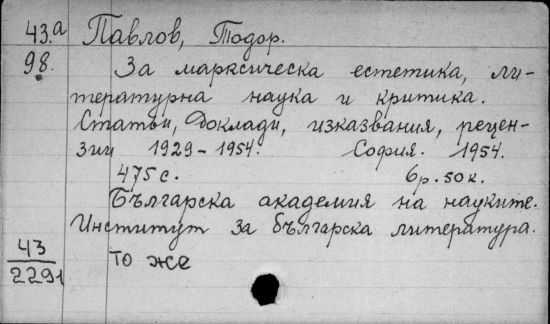 43.а Павлов, Тодор.
98. За марксическа естетика, ли-
тературна наука и критика.
Статьи, Доклади, изказвания, рецен-
зии 1929-1954. София. 1954.
475 с. 6р.50к.
Българска академия на науките.
Институт за българска литература.
43 то же
2291